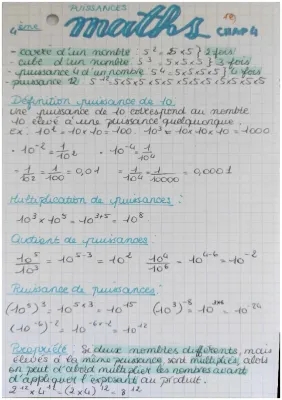 PUISSANCES
4ème maths CHAP 4
• carré d'un nombre : 5² = 5x5 } 2 fois
• cube d'un nombre : 5³ = 5x5x5 } 3 fois
• puissance 4 d'un nombre 5⁴ = 5x5x5x5 } 4 fois
• puissance 12 : 5¹² = 5x5x5x5x5x5x5x5x5x5x5x5
Définition puissance de 10
Une puissance de 10 correspond au nombre
10 élevé à une puissance quelconque.
ex : 10² = 10x10 = 100. 10³ = 10x10x10 = 1000
• 10⁻² = 1/10² • 10⁻⁴ = 1/10⁴
= 1/10² = 1/100 = 0,01 = 1/10⁴ = 1/10000 = 0,0001
Multiplication de puissances :
10³ x 10⁵ = 10³⁺⁵ = 10⁸
Quotient de puissances :
10⁵/10³ = 10⁵⁻³ = 10² 10⁴/10⁶ = 10⁴⁻⁶ = 10⁻²
Puissance de puissances :
(10⁵)³ = 10⁵ˣ³ = 10¹⁵ (10³)⁻⁸ = 10⁻²⁴
(10⁻⁶)⁻² = 10⁻⁶ˣ⁻² = 10¹²
Propriété : Si deux nombres différents, mais
élevés à la même puissance, sont multipliés, alors
on peut d'abord multiplier les nombres avant
d'appliquer l'exposant au produit.
2¹² x 4¹² = (2x4)¹² = 8¹²